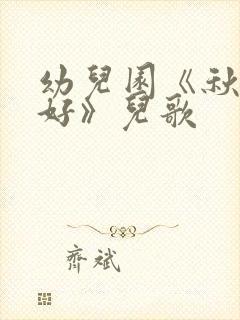 幼兒園《秋
好》兒歌
齊斌